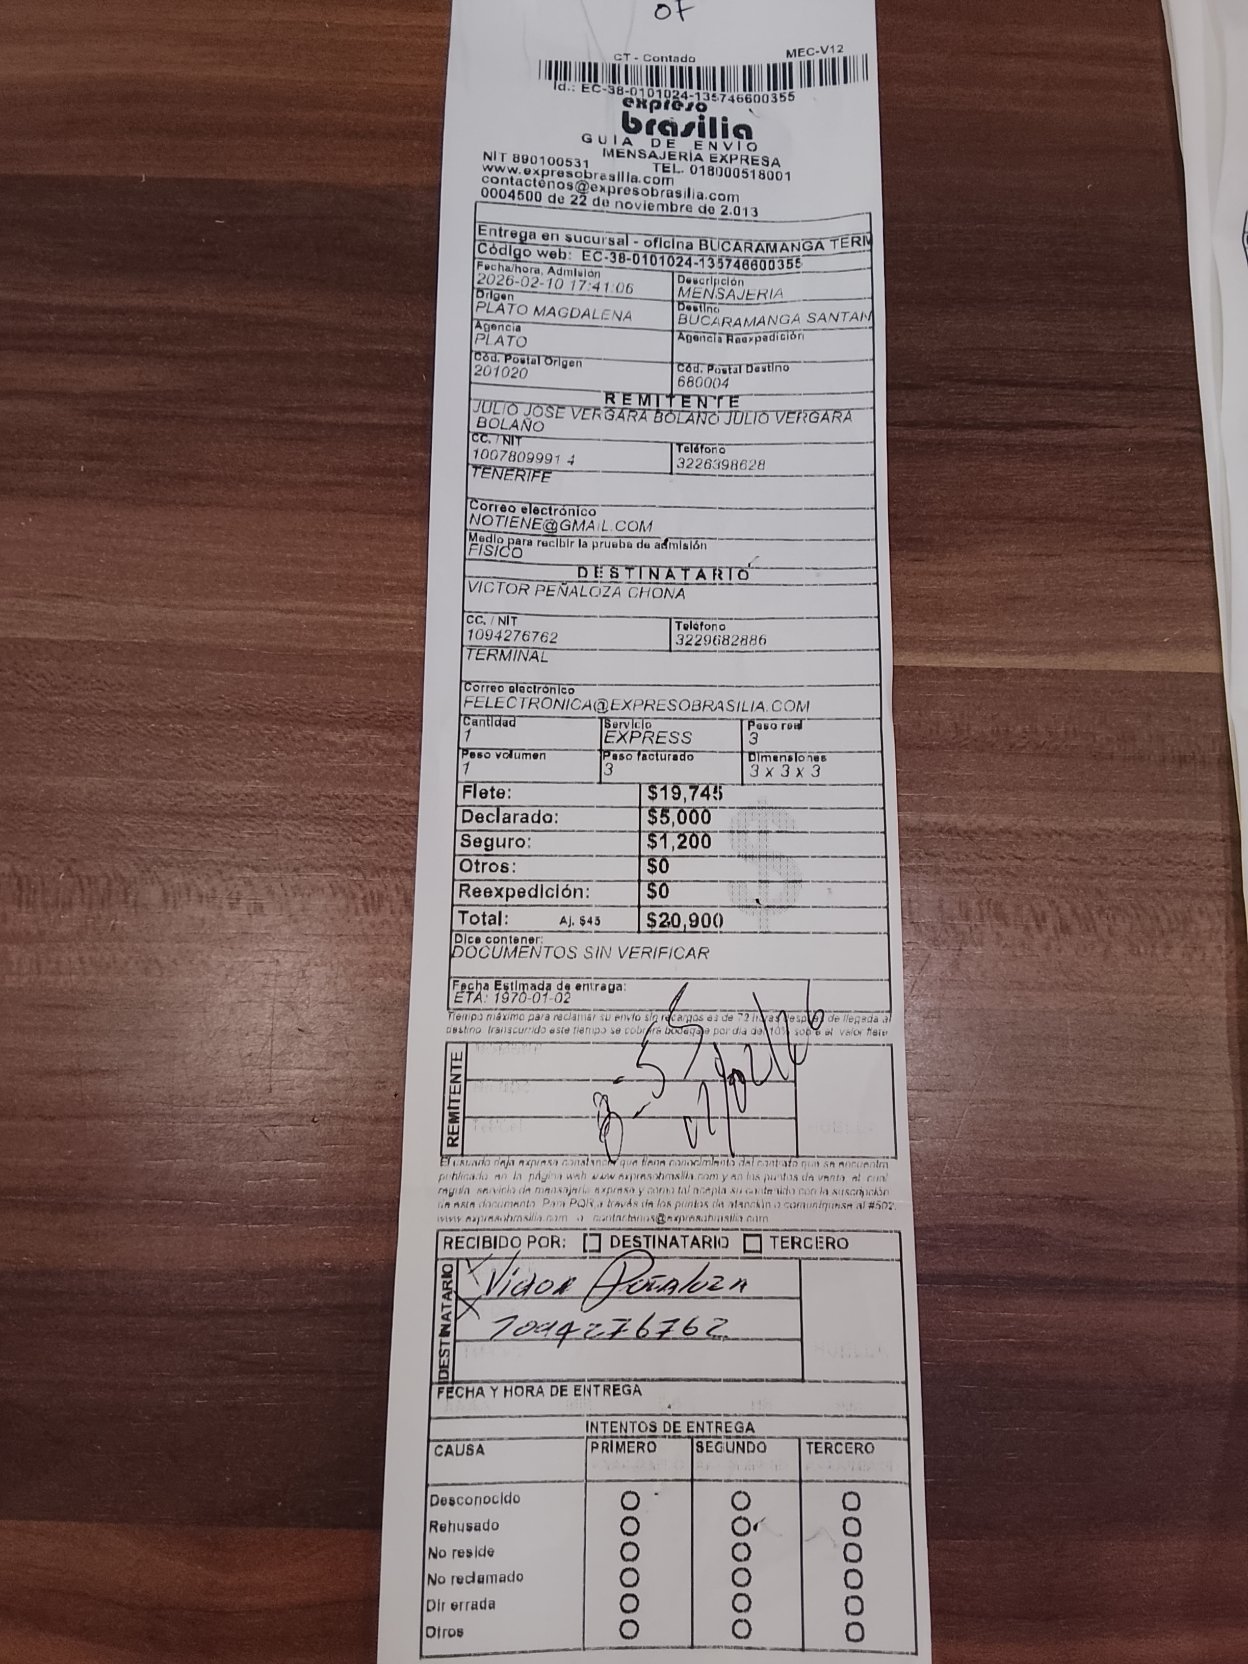 OF
CT - Contado MEC-V12
Id.: EC-38-0101024-135746600355
expreso
brasilia
GUIA DE ENVIO
MENSAJERIA EXPRESA
NIT 890100531 TEL. 018000518001
www.expresobrasilia.com
contactenos@expresobrasilia.com
0004500 de 22 de noviembre de 2.013
Entrega en sucursal - oficina BUCARAMANGA TERM
Código web: EC-38-0101024-135746600355
Fecha/hora, Admisión Descripción
2026-02-10 17:41:06 MENSAJERIA
Origen Destino
PLATO MAGDALENA BUCARAMANGA SANTAN
Agencia Agencia Reexpedición
PLATO
Cód. Postal Origen Cód. Postal Destino
201020 680004
REMITENTE
JULIO JOSE VERGARA BOLAÑO JULIO VERGARA
BOLAÑO
CC. / NIT Teléfono
1007809991 4 3226398628
TENERIFE
Correo electrónico
NOTIENE@GMAIL.COM
Medio para recibir la prueba de admisión
FISICO
DESTINATARIO
VICTOR PEÑALOZA CHONA
CC. / NIT Teléfono
1094276762 3229682886
TERMINAL
Correo electrónico
FELECTRONICA@EXPRESOBRASILIA.COM
Cantidad Servicio Peso real
1 EXPRESS 3
Peso volumen Peso facturado Dimensiones
1 3 3 x 3 x 3
Flete: $19,745
Declarado: $5,000
Seguro: $1,200
Otros: $0
Reexpedición: $0
Total: Aj. $45 $20,900
Dice contener:
DOCUMENTOS SIN VERIFICAR
Fecha Estimada de entrega:
ETA: 1970-01-02
Tiempo máximo para reclamar su envío sin recargos es de 72 horas después de llegada al
destino, transcurrido este tiempo se cobrará bodegaje por día del 10% sobre el valor flete
REMITENTE
El usuario deja expresa constancia que tiene conocimiento del contrato que se encuentra
publicado en la página web www.expresobrasilia.com y en los puntos de venta el cual
regula servicio de mensajería expresa y como tal acepta su contenido con la suscripción
de este documento. Para PQR a través de los puntos de atención o comuníquese al #502,
www.expresobrasilia.com o contactenos@expresobrasilia.com
RECIBIDO POR: DESTINATARIO TERCERO
DESTINATARIO
X Victor Peñaloza
X 1094276762
FECHA Y HORA DE ENTREGA
INTENTOS DE ENTREGA
CAUSA PRIMERO SEGUNDO TERCERO
Desconocido
Rehusado
No reside
No reclamado
Dir errada
Otros